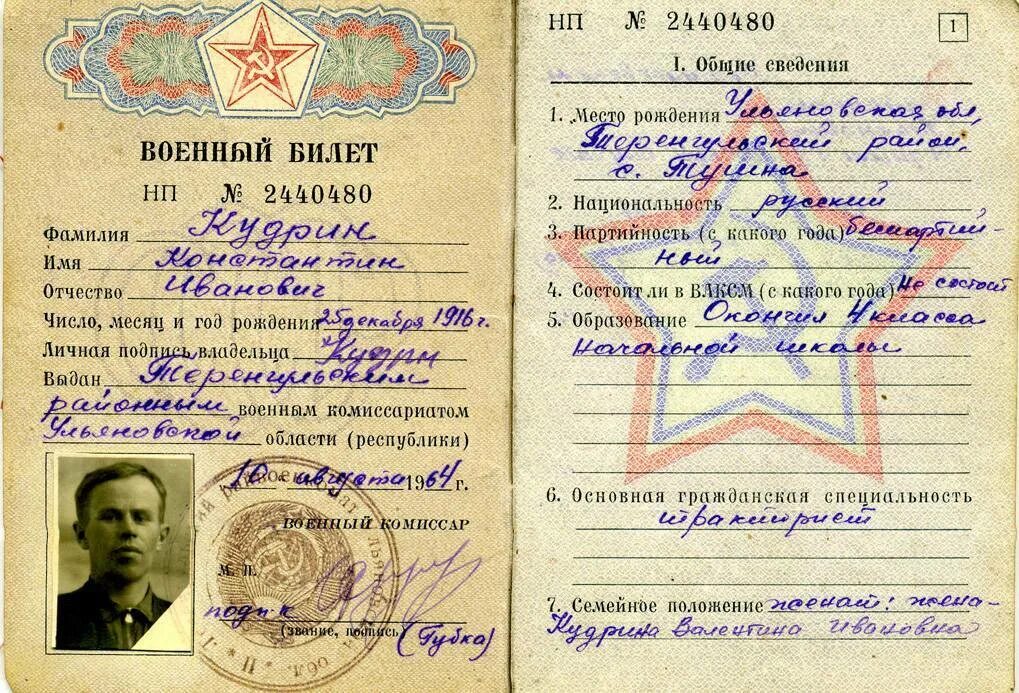 ВОЕННЫЙ БИЛЕТ
НП № 2440480
Фамилия Кудрин
Имя Константин
Отчество Иванович
Число, месяц и год рождения 25 декабря 1916 г.
Личная подпись владельца Кудрин
Выдан Теренгульским
районным военным комиссариатом
Ульяновской области (республики)
10 августа 1964 г.
ВОЕННЫЙ КОМИССАР
М. П.
подп-к
(звание, подпись) (Губка)
НП № 2440480
1
I. Общие сведения
1. Место рождения Ульяновская обл,
Теренгульский район,
с. Тушна
2. Национальность русский
3. Партийность (с какого года) беспартий-
ный
4. Состоит ли в ВЛКСМ (с какого года) Не состоит
5. Образование Окончил 4 класса
начальной школы
6. Основная гражданская специальность
тракторист
7. Семейное положение женат: жена-
Кудрина Валентина Ивановна